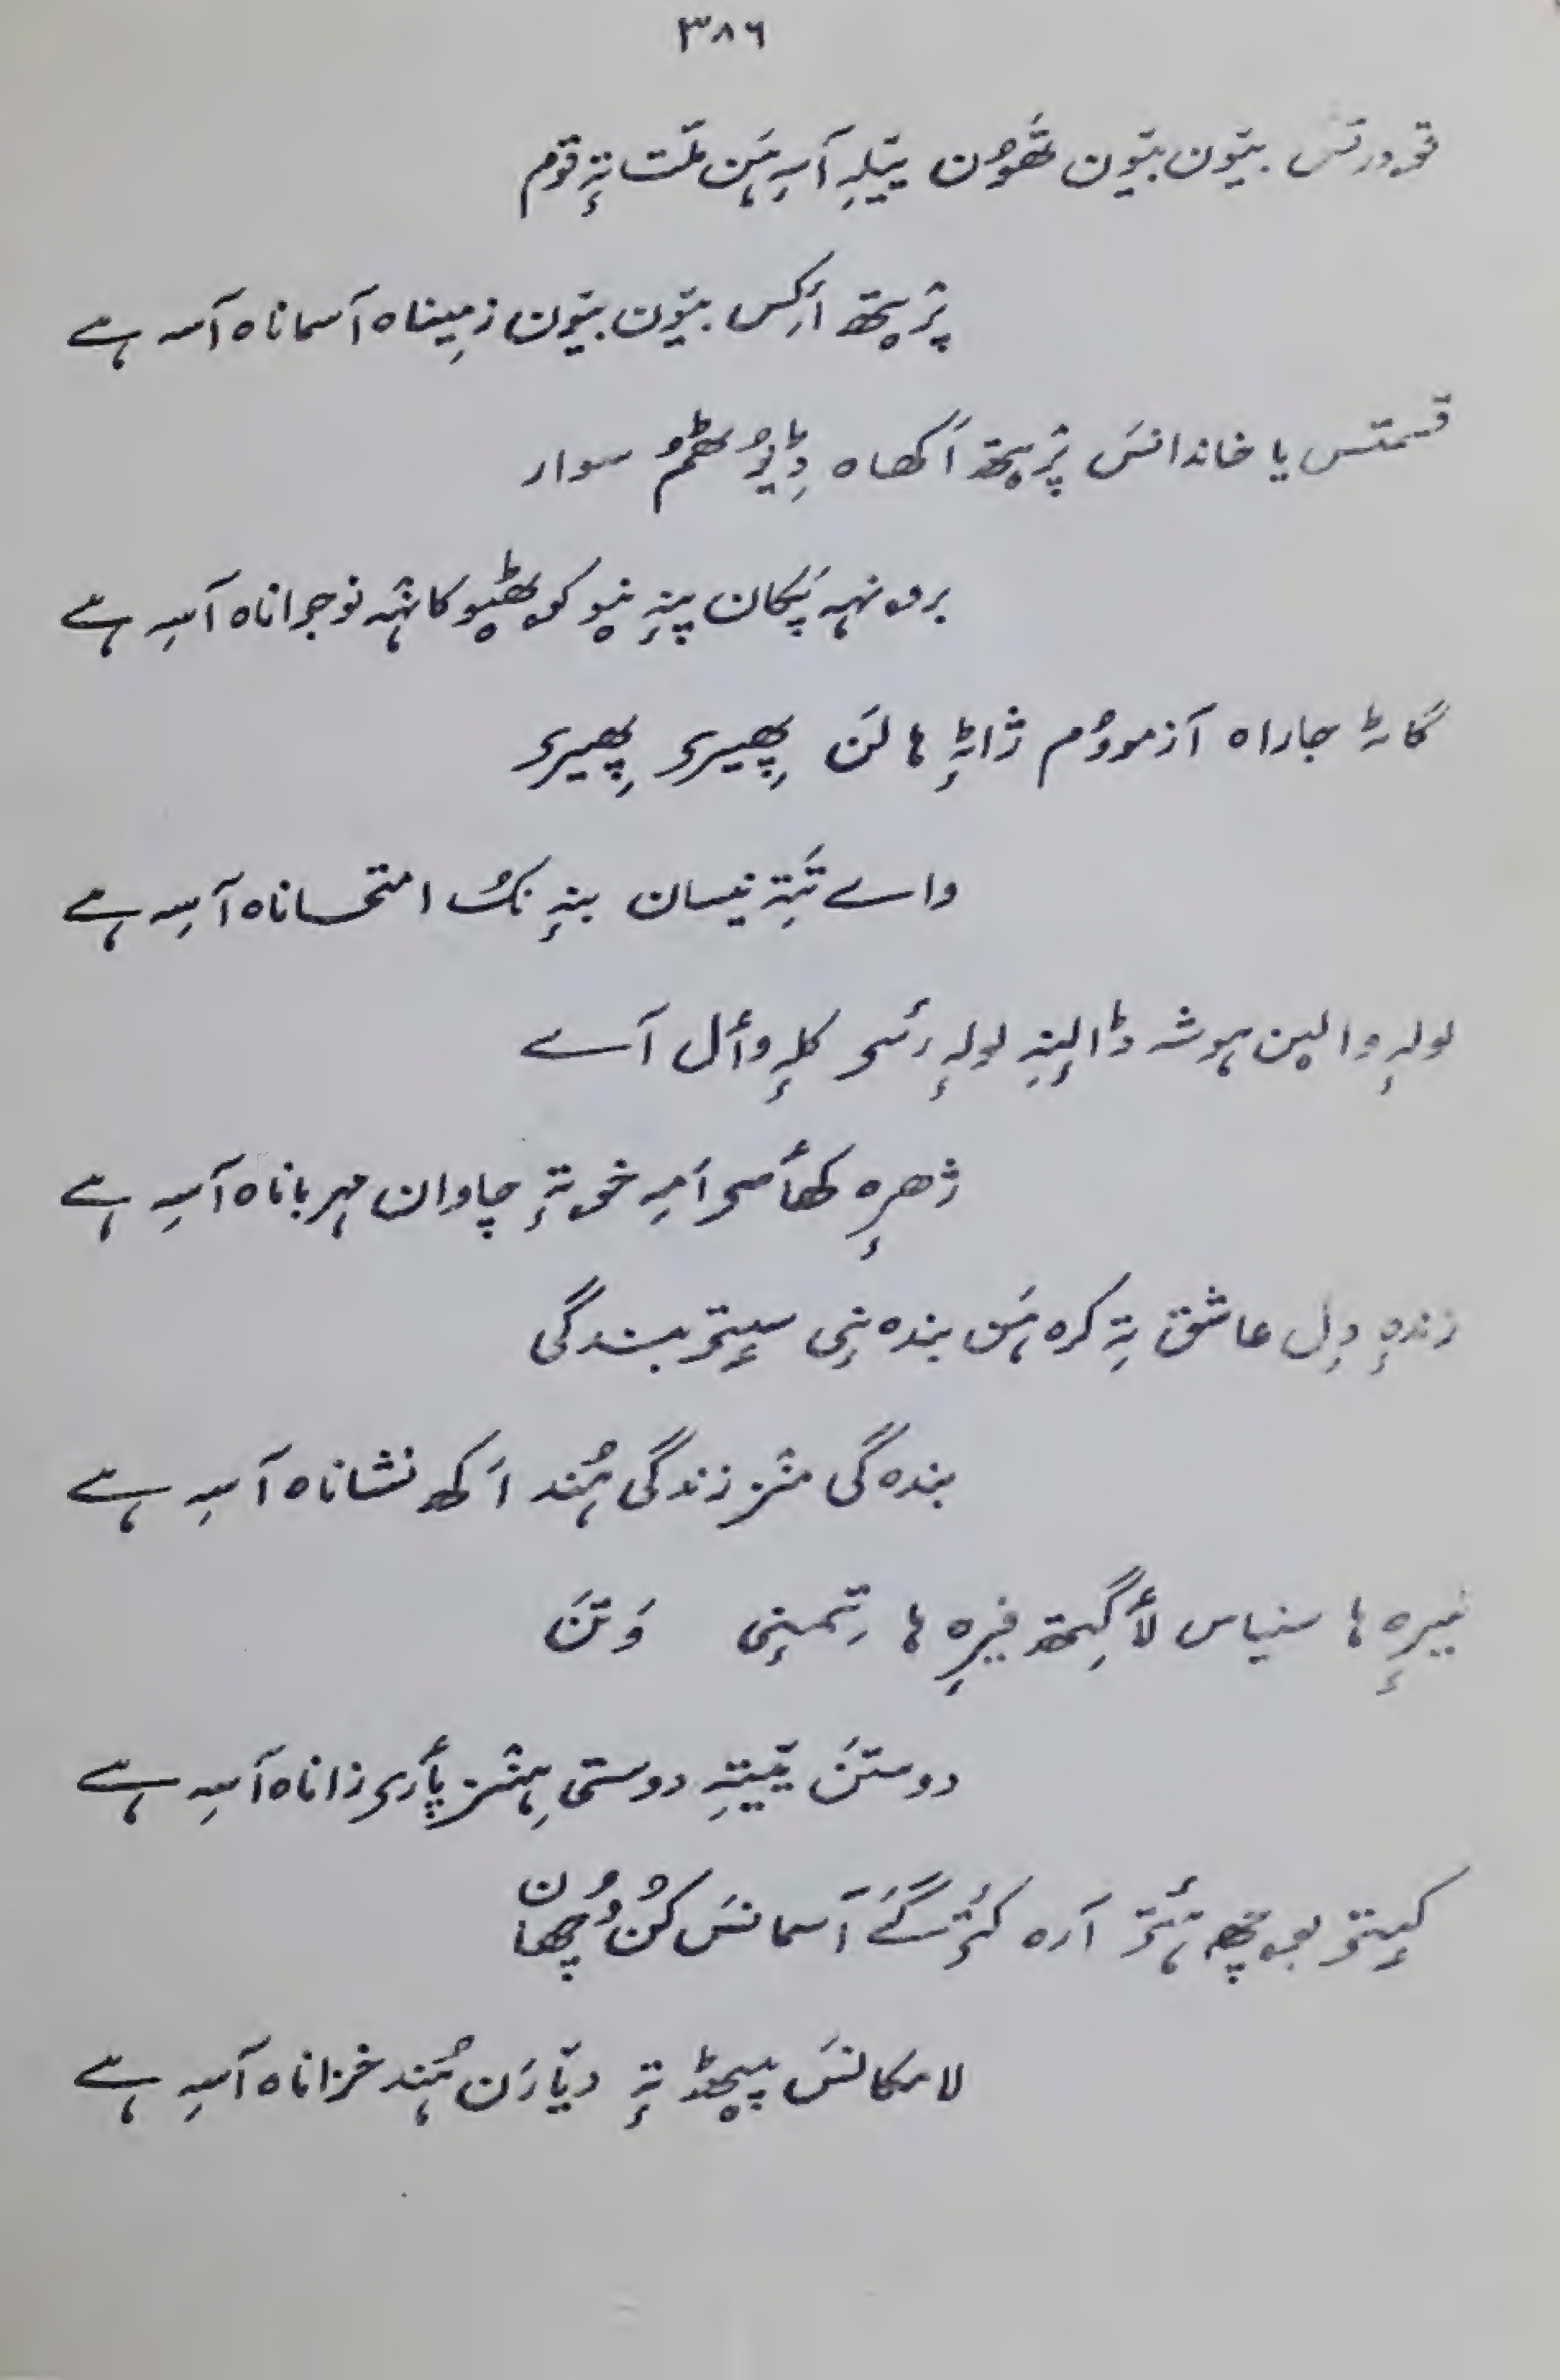 ٣٨٦
قۄدرتس بیۆن بیۆن تھَوُن ییٚلہِ آسہِ ہَن ملّت تہٕ قوم
پرٛیتھ اَکِس بیۆن بیۆن زمیناہ آسماناہ آسہِ ہے
قسمتس یا خاندانسَ پرٛیتھ اَکھاہ ڈیوٗٹھمُ سوار
برونہہ پَکان پننیو کوٹھیو کانٛہہ نوجواناہ آسہِ ہے
گاٹہٕ جاراہ آزموومُ ژاٹہٕ ہالَن پھیرۍ پھیرۍ
واے تَتہِ نیسان بنہٕ نُک امتحاناہ آسہِ ہے
لولہٕ والین ہوشہ ڈالینہِ لولہٕ رٔسۍ کلہٕ وأل آے
ژھرٕ کھأسۍ اَمہِ خۄتہٕ چاوان مہرباناہ آسہِ ہے
زندٕہ دِل عاشق تہِ کرہ ہَن بندہ نٕی سٕیتۍ بندگی
بندہ گی منٛز زندگی ہُند اَکھ نشاناہ آسہِ ہے
نیرٕہ ہا سنیاس لٲگِتھ فیرِہ ہا تِمنٕی وَتَن
دوستَن ییٚتہِ دوستی ہِنٛز پٲرۍ زاناہ آسہِ ہے
کٕیتۍ بۄچھِ ۂتۍ آرہ کٔژ گے آسمانسَ کُن وُچھان
لامکانسَ پیٹھ تہٕ دیارَن ہُند خزاناہ آسہِ ہے